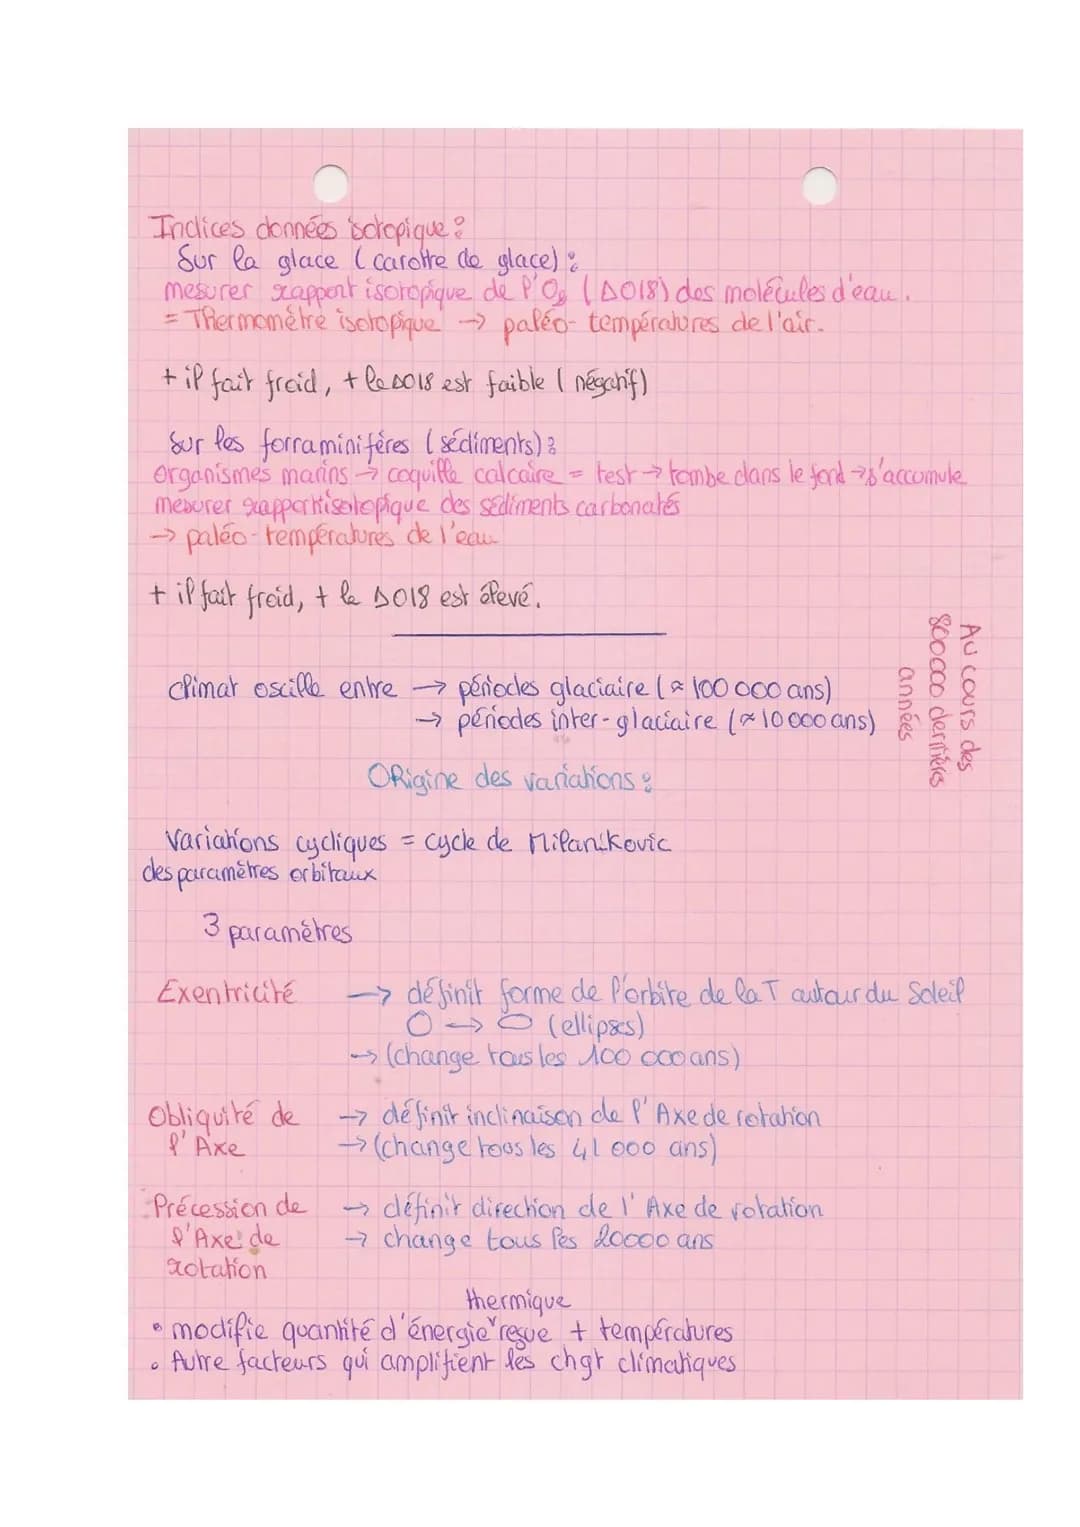 Indices données isotopique :
Sur la glace (carotte de glace) :
mesurer rapport isotopique de l'O8 (ΔO18) des molécules d'eau.
= Thermomètre isotopique → paléo-températures de l'air.
+ il fait froid, + le ΔO18 est faible (négatif)
Sur les forraminifères (sédiments) :
organismes marins → coquille calcaire = test → tombe dans le fond → s'accumule
mesurer rapport isotopique des sédiments carbonatés
→ paléo-températures de l'eau
+ il fait froid, + le ΔO18 est élevé.
climat oscille entre → périodes glaciaire (≈ 100 000 ans)
→ périodes inter-glaciaire (≈ 10 000 ans)
Au cours des
800 000 dernières
années
Origine des variations :
Variations cycliques = cycle de Milanikovic
des paramètres orbitaux
3 paramètres
Exentricité → définit forme de l'orbite de la T autour du Soleil
O → O (ellipses)
→ (change tous les 100 000 ans)
Obliquité de → définit inclinaison de l'Axe de rotation
l'Axe → (change tous les 41 000 ans)
Précession de → définit direction de l'Axe de rotation
l'Axe de → change tous les 20000 ans
rotation
thermique
• modifie quantité d'énergie reçue + températures
• Autre facteurs qui amplifient les chgt climatiques